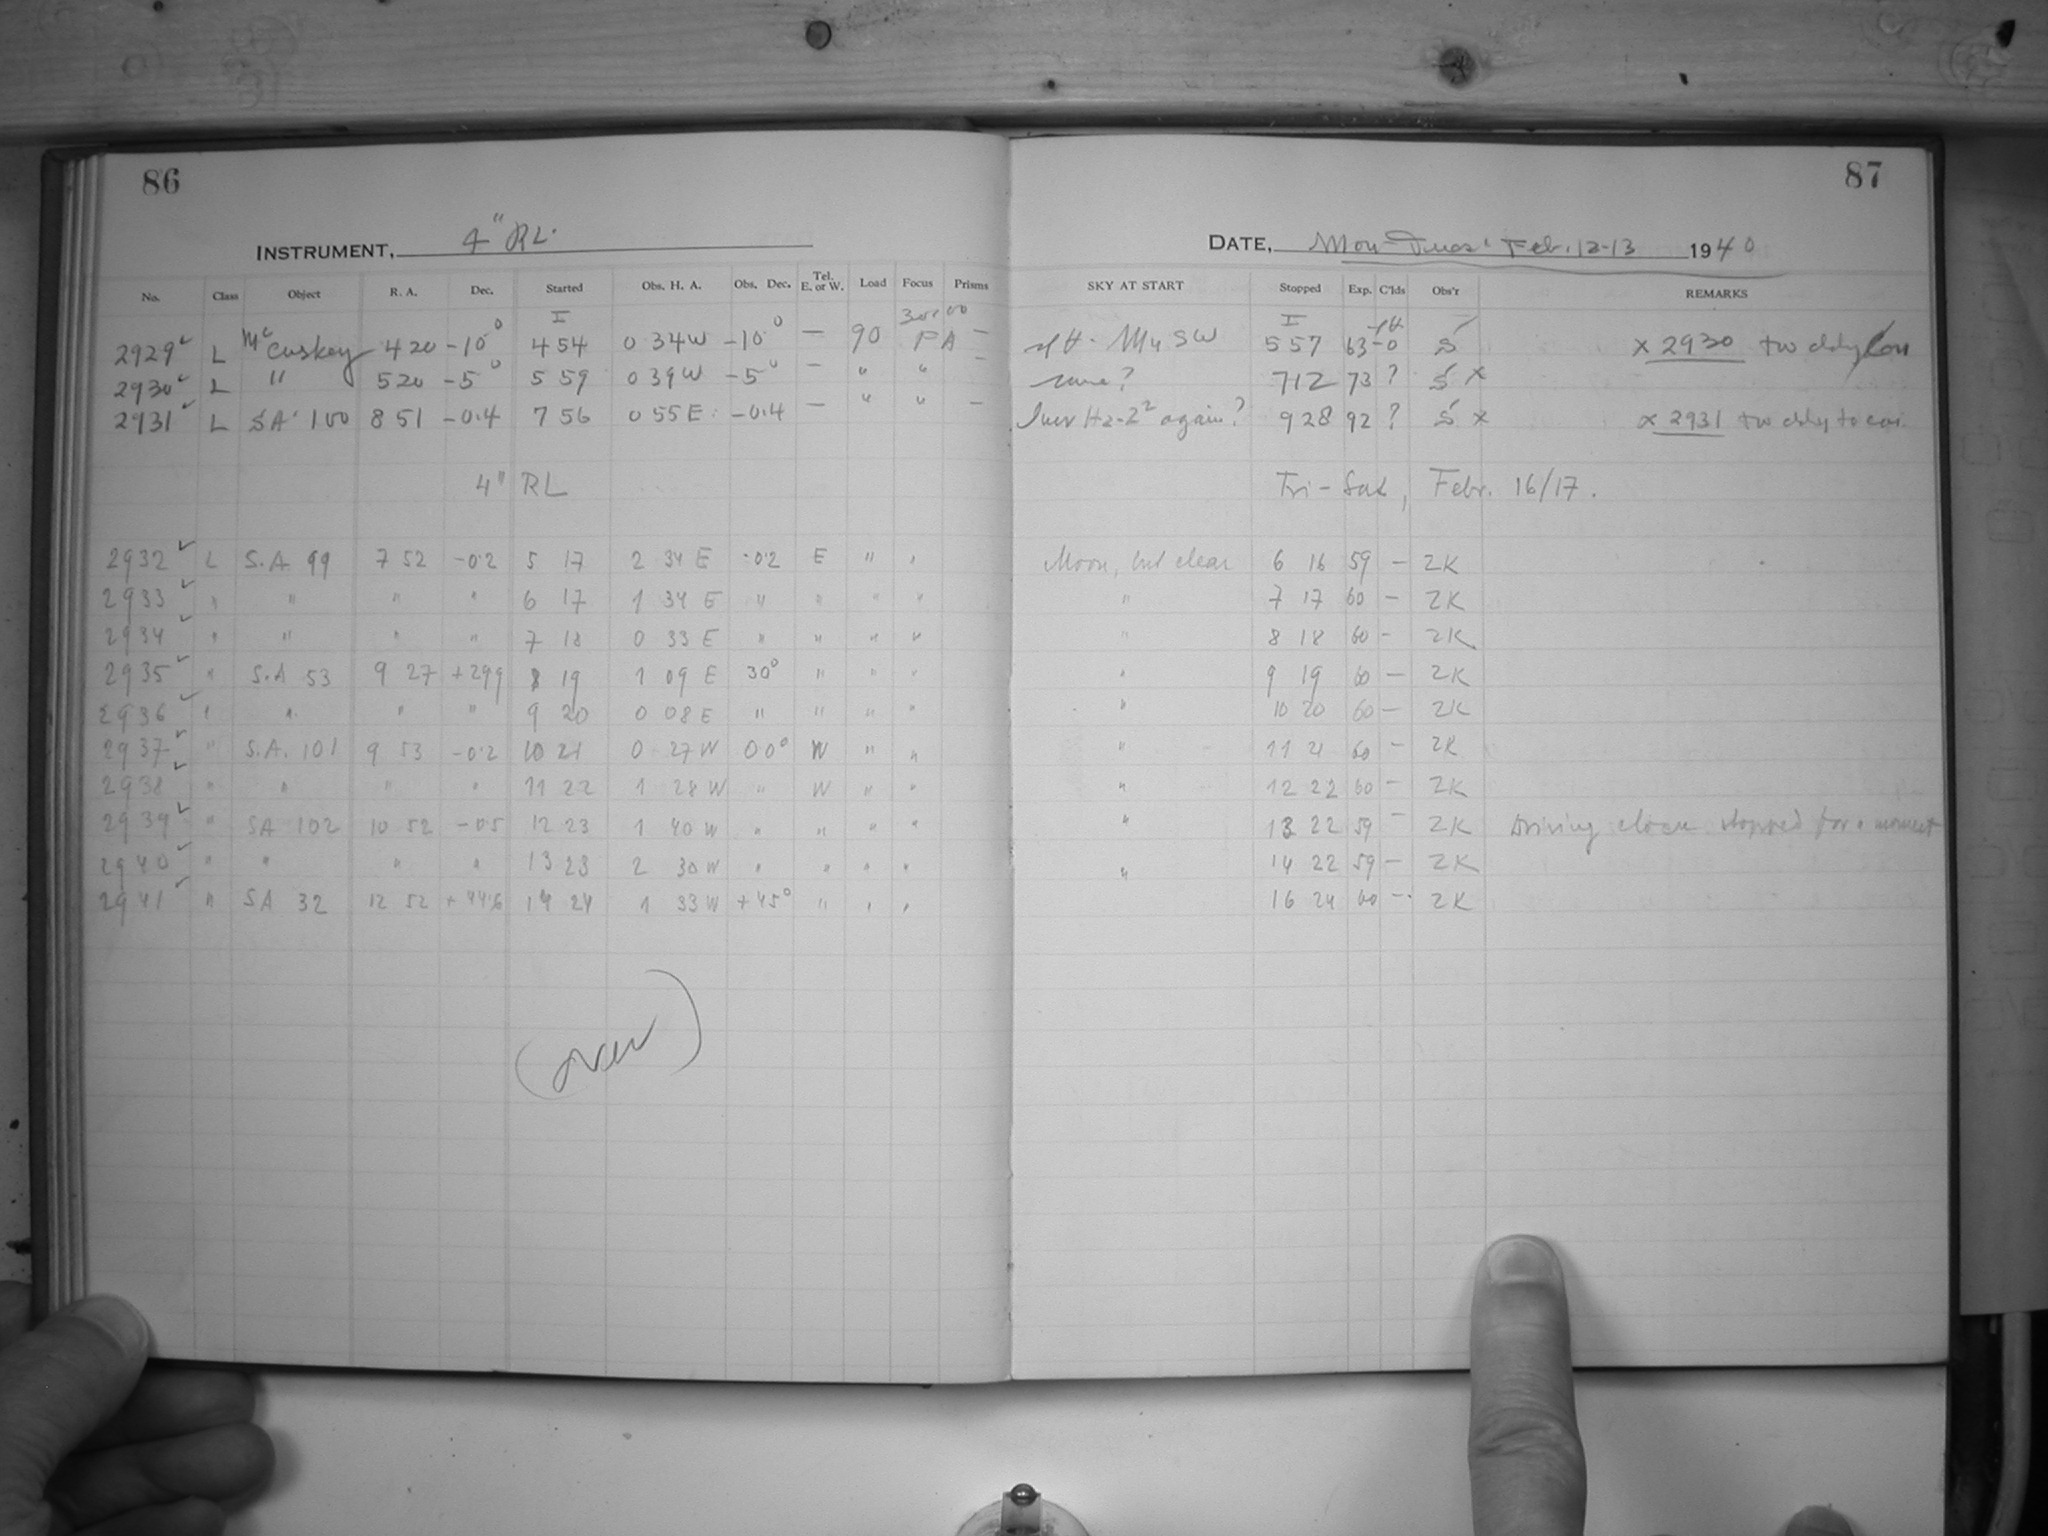 86
87
INSTRUMENT, 4" RL.
DATE, Mon-Tues. Feb. 12-13 1940
No. Class Object R. A. Dec. Started Obs. H. A. Obs. Dec. Tel. E. or W. Load Focus Prisms SKY AT START Stopped Exp. C'lds Obs'r REMARKS
2929 L McCuskey 4 20 -10° 4 54 0 34W -10° — 90 FA — SW 5 57 63 -0 S x 2930
2930 L " 5 20 -5° 5 59 0 39W -5° — " " — same? 7 12 73 ? S x
2931 L SA 100 8 51 -0.4 7 56 0 55E -0.4 — " " — again? 9 28 92 ? S x x 2931
4" RL Fri-Sat, Febr. 16/17.
2932 L S.A. 99 7 52 -0.2 5 17 2 34 E -0.2 E " " Moon, but clear 6 16 59 — ZK
2933 " " " " 6 17 1 34 E " " " " " 7 17 60 — ZK
2934 " " " " 7 18 0 33 E " " " " " 8 18 60 - ZK
2935 " S.A 53 9 27 +29.9 8 19 1 09 E 30° " " " " 9 19 60 — ZK
2936 " " " " 9 20 0 08 E " " " " " 10 20 60 — ZK
2937 " S.A. 101 9 53 -0.2 10 21 0 27 W 0.0° W " " " 11 21 60 — ZK
2938 " " " " 11 22 1 28 W " W " " " 12 22 60 — ZK
2939 " SA 102 10 52 -0.5 12 23 1 40 W " " " " " 13 22 59 — ZK Driving clock stopped for a moment
2940 " " " " 13 23 2 30 W " " " " " 14 22 59 — ZK
2941 " SA 32 12 52 +44.6 14 24 1 33 W +45° " " " 16 24 60 — ZK
(over)